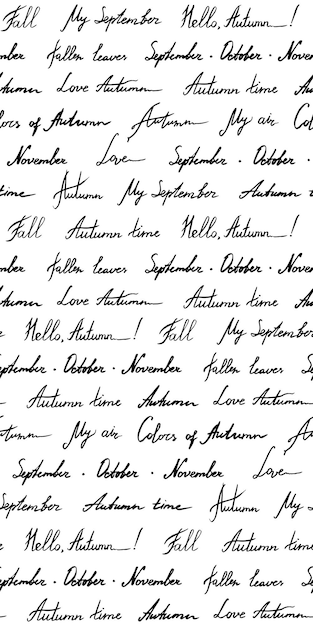 Fall My September Hello, Autumn!
mber fallen leaves September · October · Nove
tumn Love Autumn Autumn time Au
lors of Autumn Autumn My air Co
November Love September · October ·
time Autumn My September Autumn t
Fall Autumn time Hello, Autumn!
mber fallen leaves September · October · Nove
tumn Love Autumn Autumn time Au
Hello, Autumn! Fall My September
eptember · October · November fallen leaves Se
Autumn time Autumn Love Autumn
utumn My air Colors of Autumn Au
September · October · November Love
September Autumn time Autumn My S
Hello, Autumn! Fall Autumn time
eptember · October · November fallen leaves Se
Autumn time Autumn Love Autumn